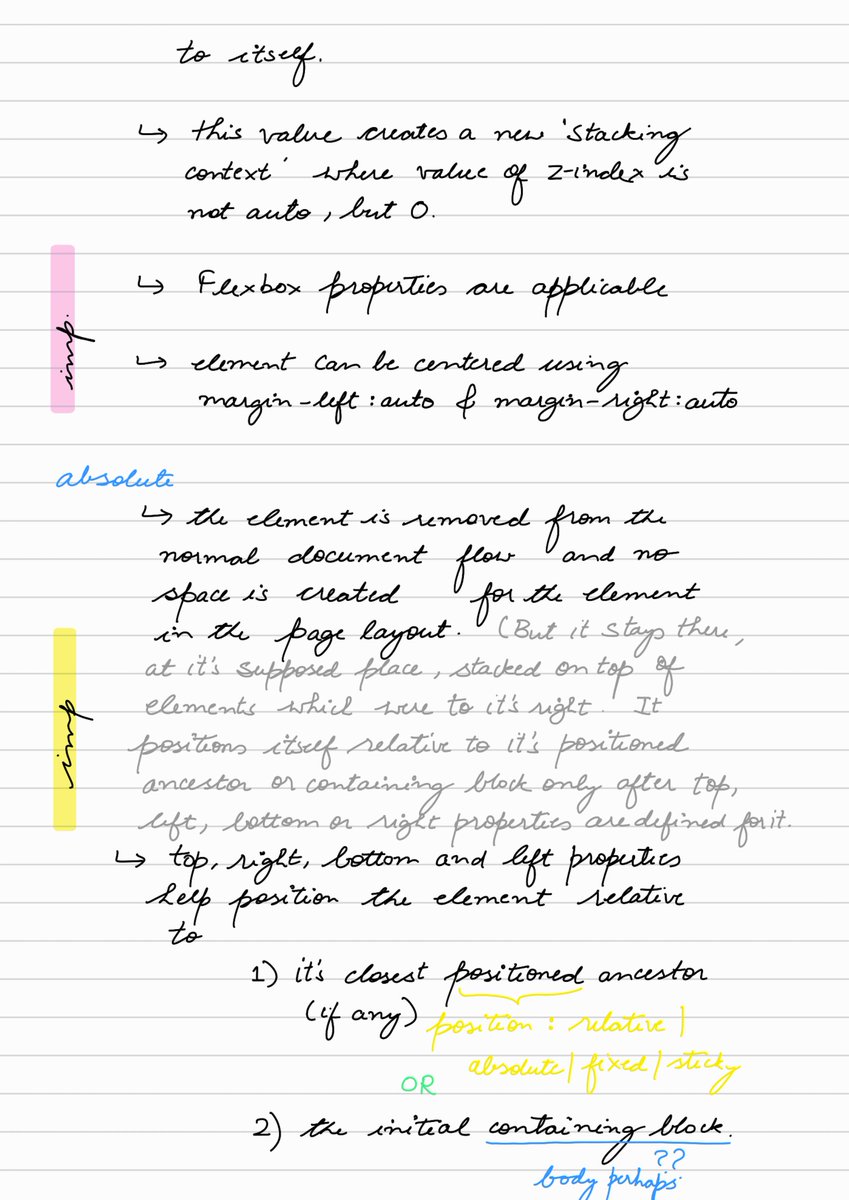 to itself.
↳ this value creates a new 'stacking
context' where value of z-index is
not auto, but 0.
↳ Flexbox properties are applicable
imp.
↳ element can be centered using
margin-left:auto & margin-right:auto
absolute
↳ the element is removed from the
normal document flow and no
space is created for the element
in the page layout. (But it stays there,
at it's supposed place, stacked on top of
elements which were to it's right. It
imp
positions itself relative to it's positioned
ancestor or containing block only after top,
left, bottom or right properties are defined for it.
↳ top, right, bottom and left properties
help position the element relative
to
1) it's closest positioned ancestor
(if any) position : relative |
absolute | fixed | sticky
OR
2) the initial containing block.
??
body perhaps.